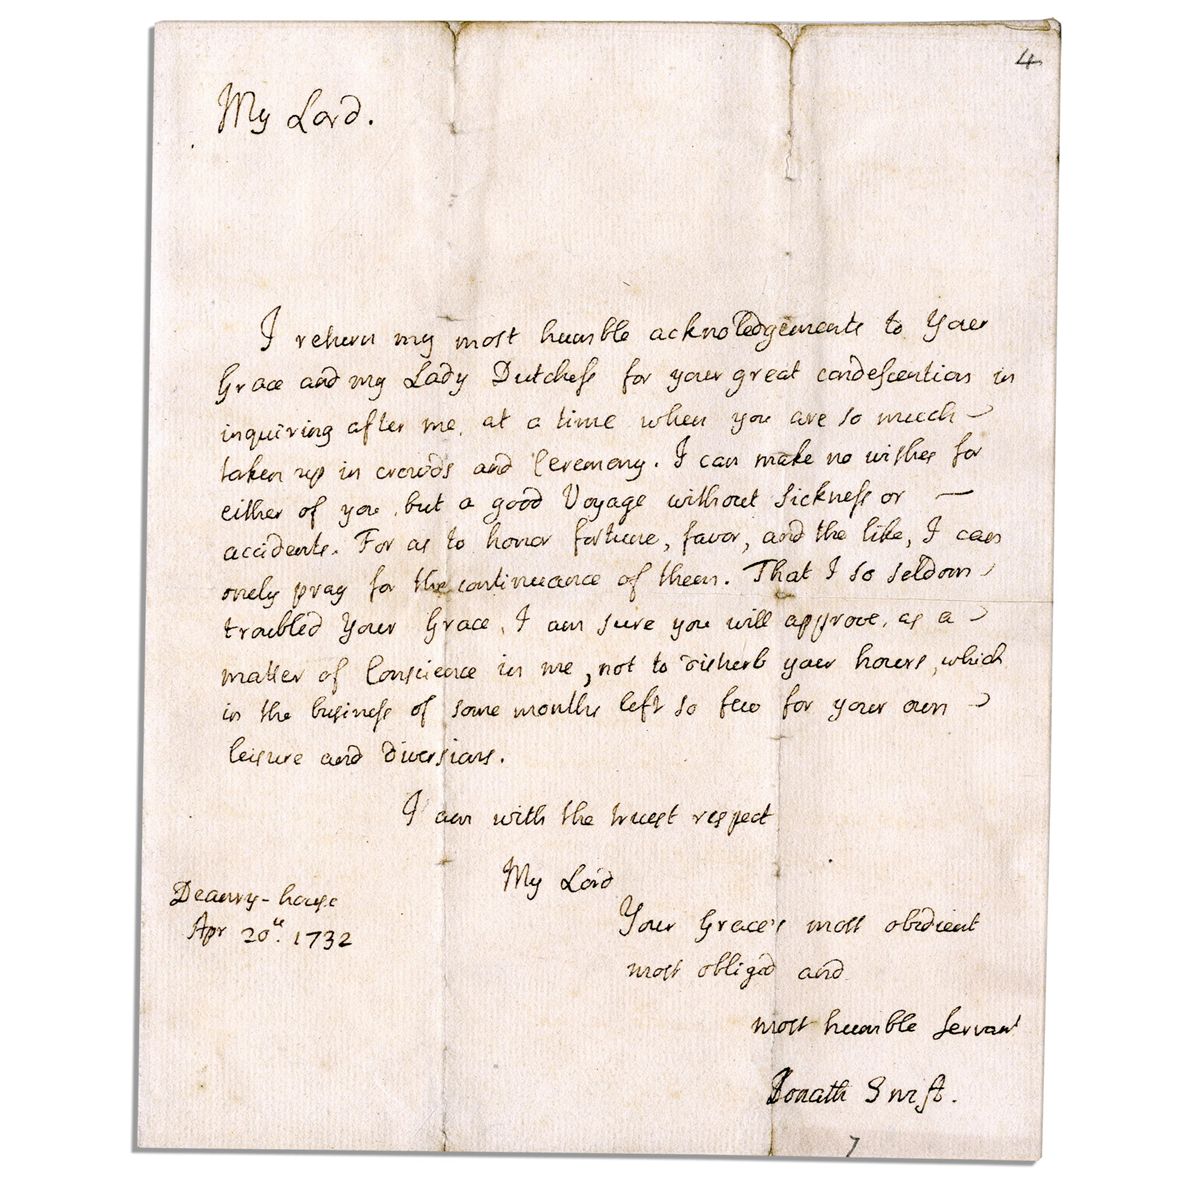 4
My Lord.
I return my most humble acknoledgements to Your
Grace and my Lady Dutchess for your great condescention in
inquiring after me, at a time when you are so much
taken up in crowds and Ceremony. I can make no wishes for
either of you, but a good Voyage without Sickness or —
accidents. For as to honor fortune, favor, and the like, I can
onely pray for the continuance of them. That I so seldom
troubled Your Grace, I am sure you will approve, as a
matter of Conscience in me, not to disturb your hours, which
in the business of some months left so few for your own
leisure and diversions.
I am with the truest respect
My Lord
Your Grace's most obedient
most obliged and
most humble Servant
Jonath Swift.
Deanry-house
Apr 20th. 1732
7